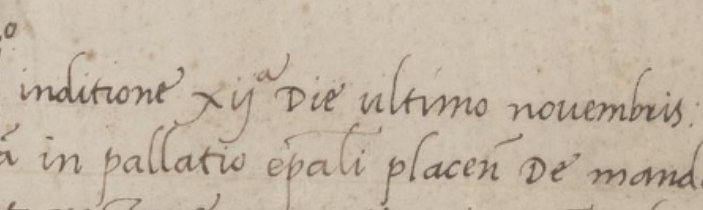 inditione xijª Die ultimo nouembris
in pallatio ep̄ali placen̄ De